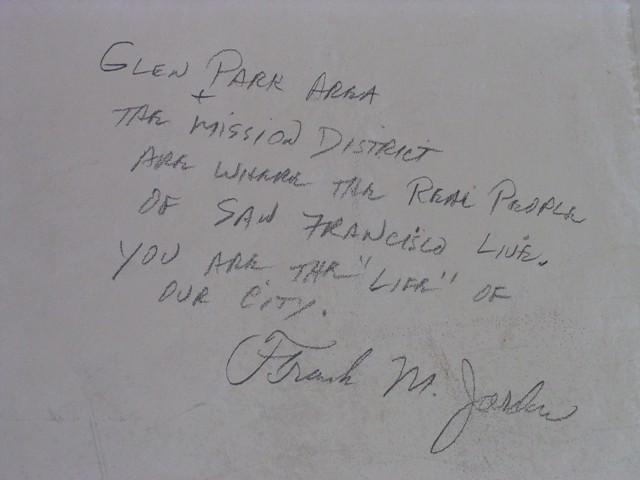 GLEN PARK AREA
+
THE MISSION DISTRICT
ARE WHERE THE REAL PEOPLE
OF SAN FRANCISCO LIVE.
YOU ARE THE "LIFE" OF
OUR CITY.
Frank M. Jordan